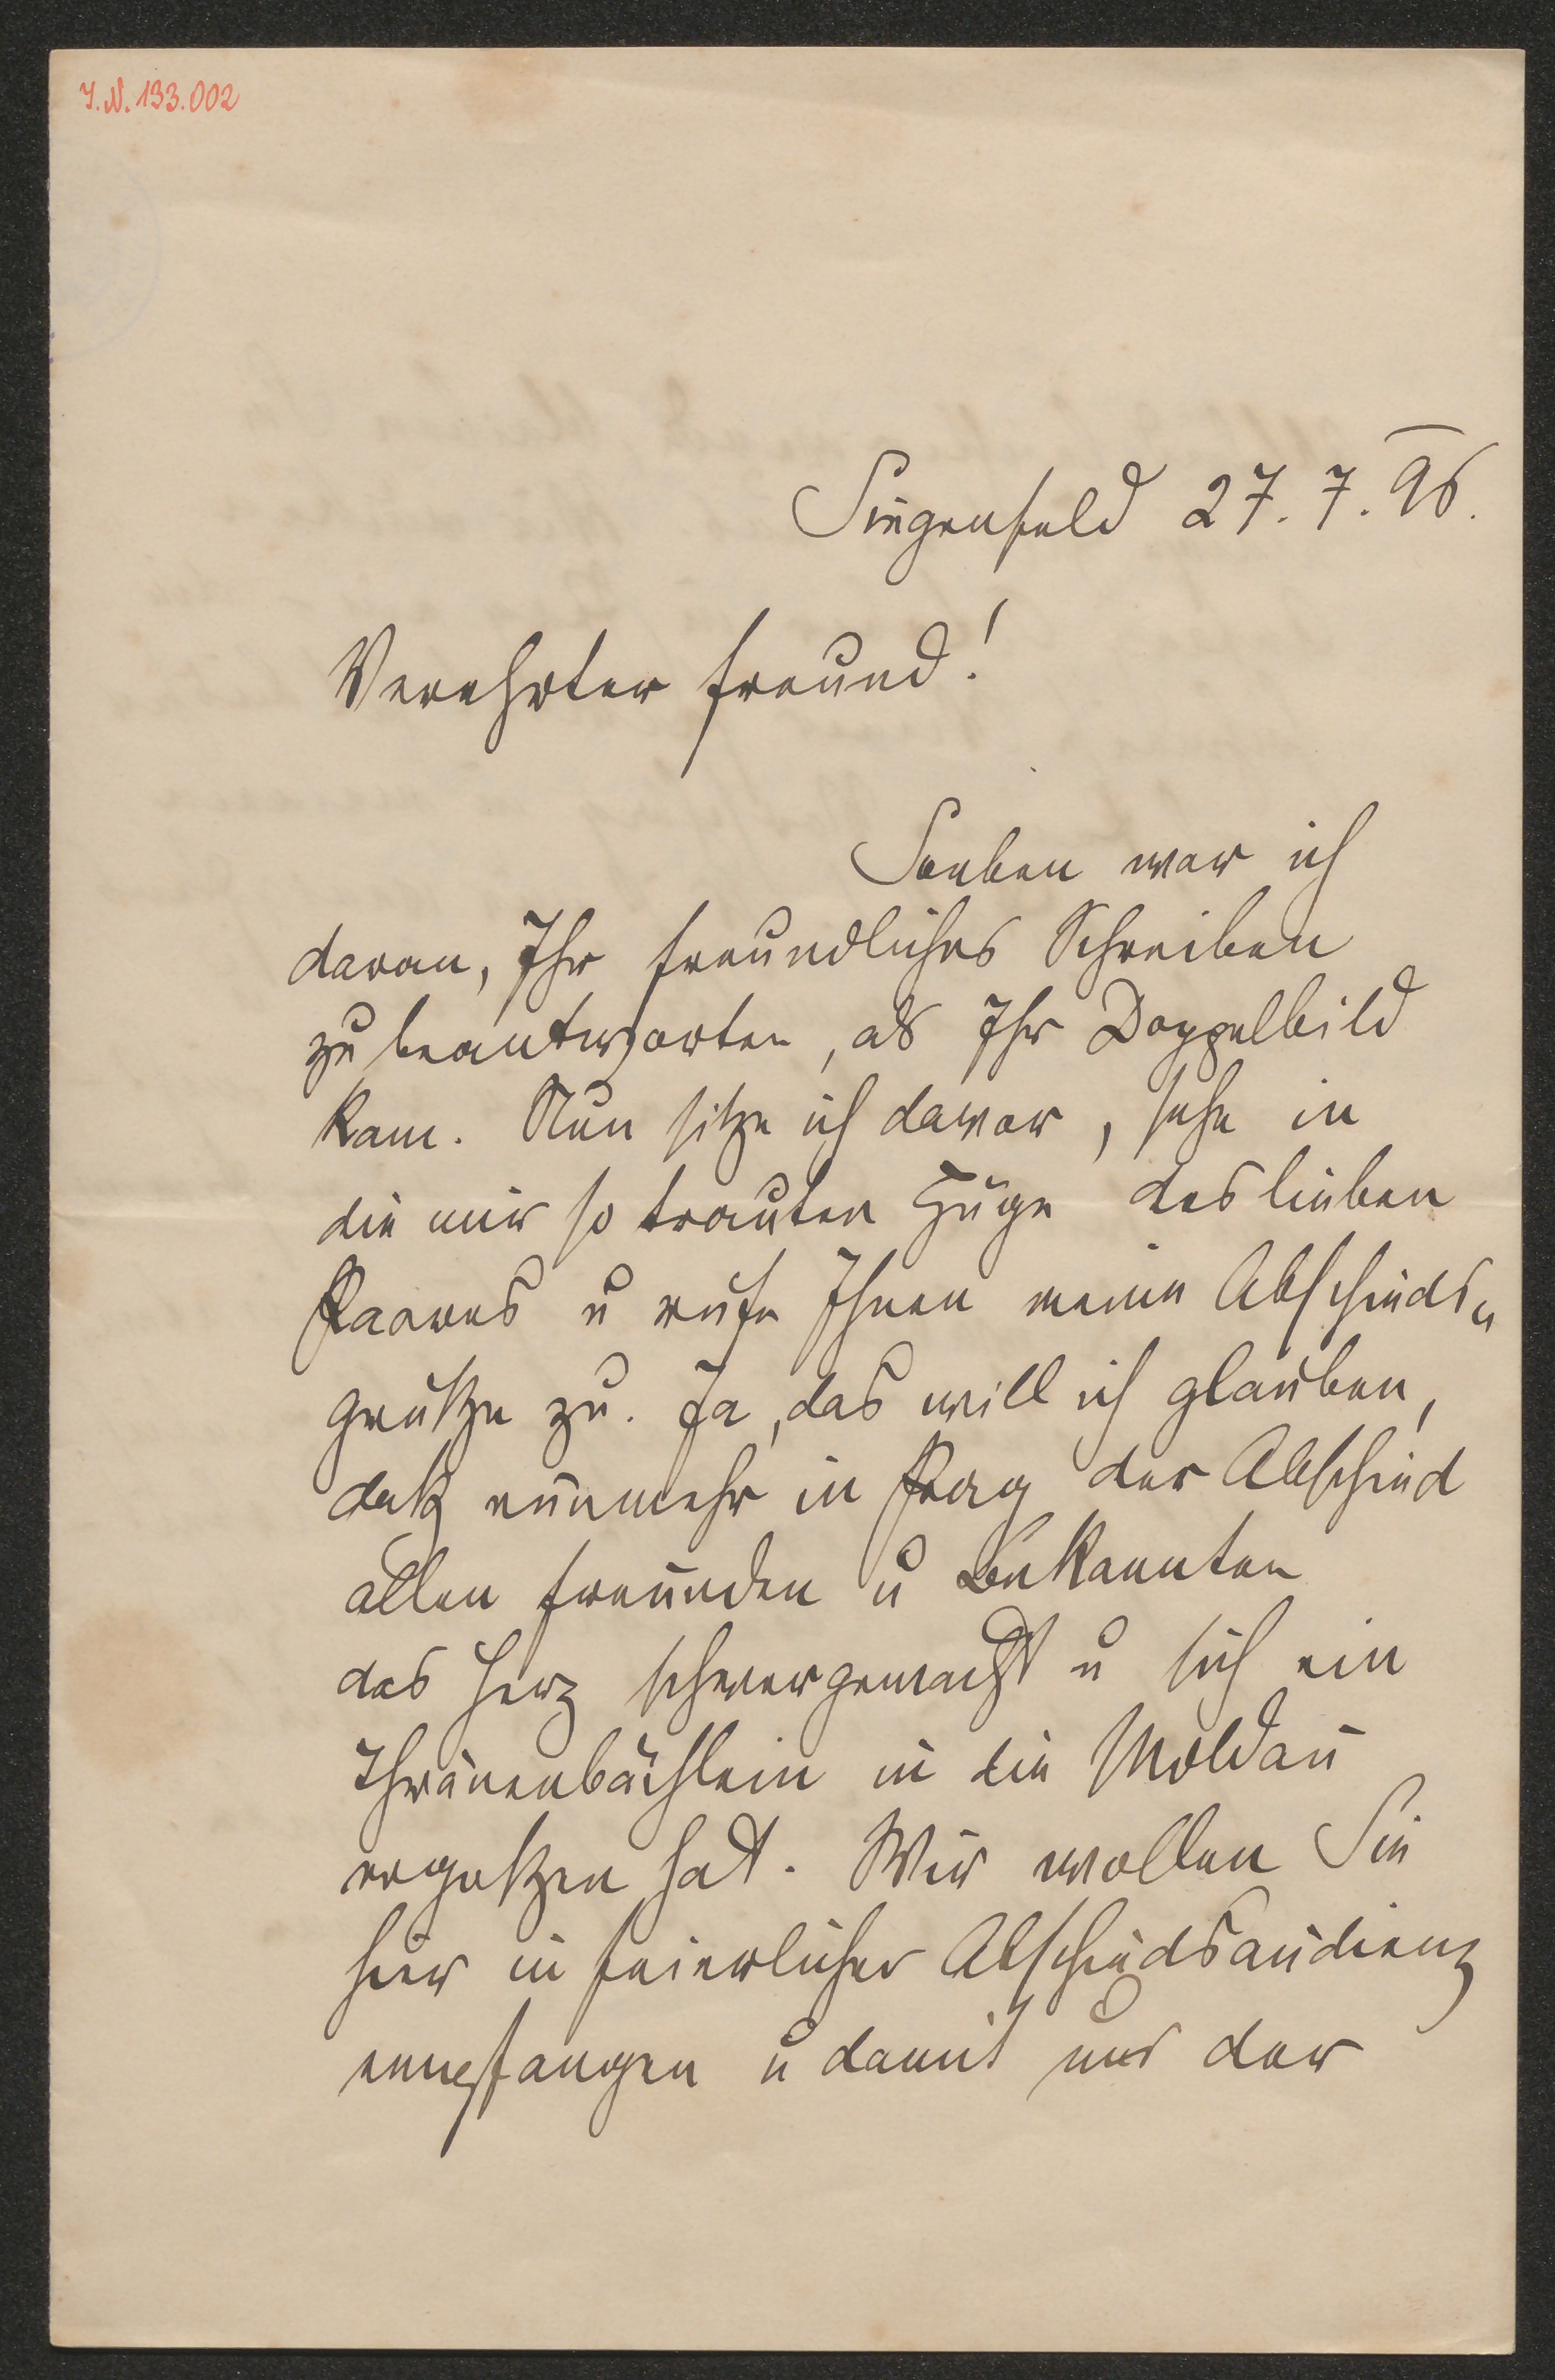 J.N. 133.002
Siegenfeld 27. 7. 96.
Verehrter Freund!
Soeben war ich
daran, Ihr freundliches Schreiben
zu beantworten, als Ihr Doppelbild
kam. Nun sitze ich davor, sehe in
die mir so trauten Züge des lieben
Paares u rufe Ihnen meine Abschieds„
grüße zu. Ja, das will ich glauben,
daß nunmehr in Prag der Abschied
allen Freunden u Bekannten
das Herz schwergemacht u sich ein
Thränenbächlein in die Moldau
ergoßen hat. Wir wollen Sie
hier in feierlicher Abschiedsaudienz
empfangen u damit uns der